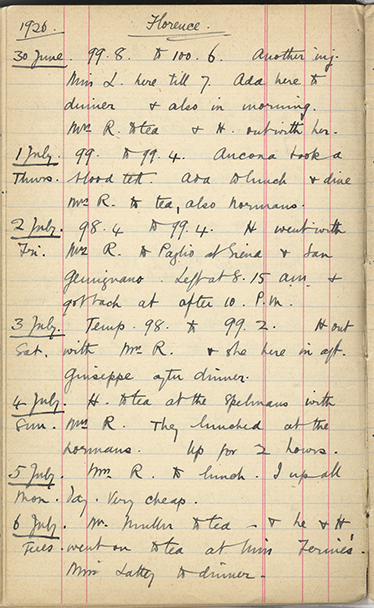 1926. Florence.
30 June. 99.8. to 100.6. Another inj.
Miss L. here till 7. Ada here to
dinner & also in morning.
Mrs R. to tea & H. out with her.
1 July. 99. to 99.4. Ancona took a
Thurs. blood test. Ada to lunch & dine
Mrs R. to tea, also Normans.
2 July. 98.4 to 99.4. H went with
Fri. Mrs R. to Paglio at Siena & San
Gemignano. Left at 8.15 am &
got back at after 10. P.M.
3 July. Temp. 98. to 99.2. H out
Sat. with Mrs R. & she here in aft.
Giuseppe after dinner.
4 July. H. to tea at the Spelmans with
Sun. Mrs R. They lunched at the
Normans. Up for 2 hours.
5 July. Mrs R. to lunch. I up all
Mon. day. Very cheap.
6 July. Mr. Muller to tea - & he & H
Tues. went on to tea at Miss
Miss Lattey to dinner.